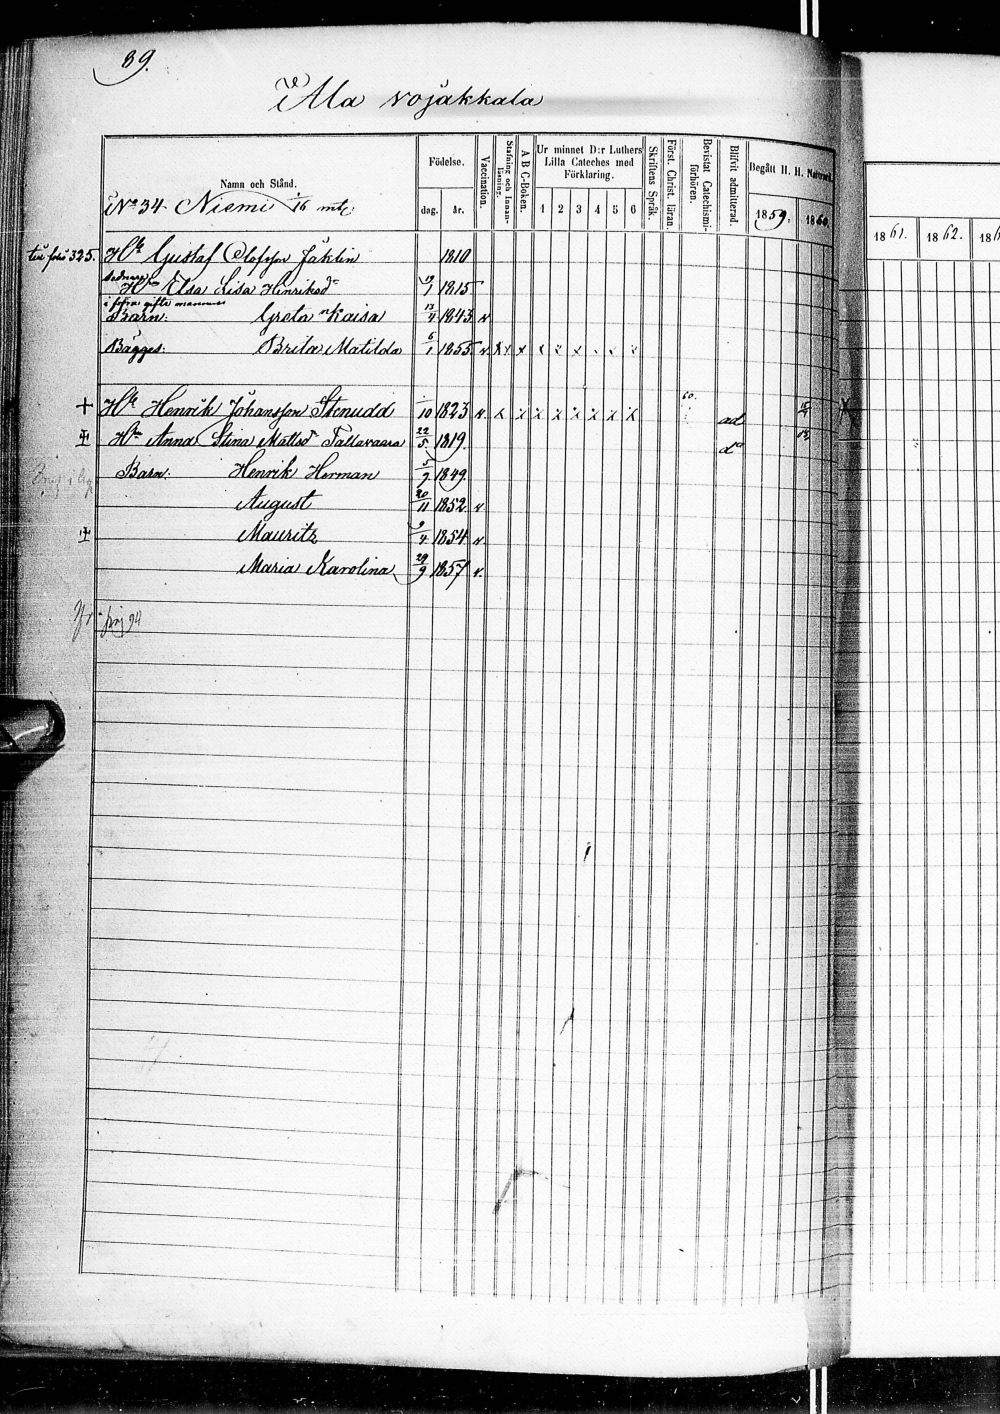 89.
Ala vojakkala
Namn och Stånd.
Födelse.
dag. år.
Vaccination.
Stafning och innanläsning.
A B C-Boken.
Ur minnet D:r Luthers Lilla Cateches med Förklaring.
1 2 3 4 5 6
Skriftens Språk.
Förft. Christ. läran.
Bevistat Catechismiförhören.
Blifvit admitterad.
Begått H. H. Nattvard.
1859. 1860.
1861. 1862. 186
No 34 Niemi 1/16 mtl
till folio 325. Hk Gustaf Olofsson Jäklin 1810
Hn Elsa Lisa Henriksdr 19/1 1815
i förra giftet
Barn: Greta Kaisa 13/4 1843 v
Bägges: Brita Matilda 6/1 1855 v x x x x x x x
+ Hk Henrik Johansson Stenudd 10 1823 v x x x x x x x x 60. ad
+ Hn Anna Stina Mattsdr Tallavaara 22/5 1819. do
Barn: Henrik Herman 5/9 1849.
August 20/11 1852 v
+ Mauritz 9/4 1854 v
Maria Karolina 29/9 1857 v.